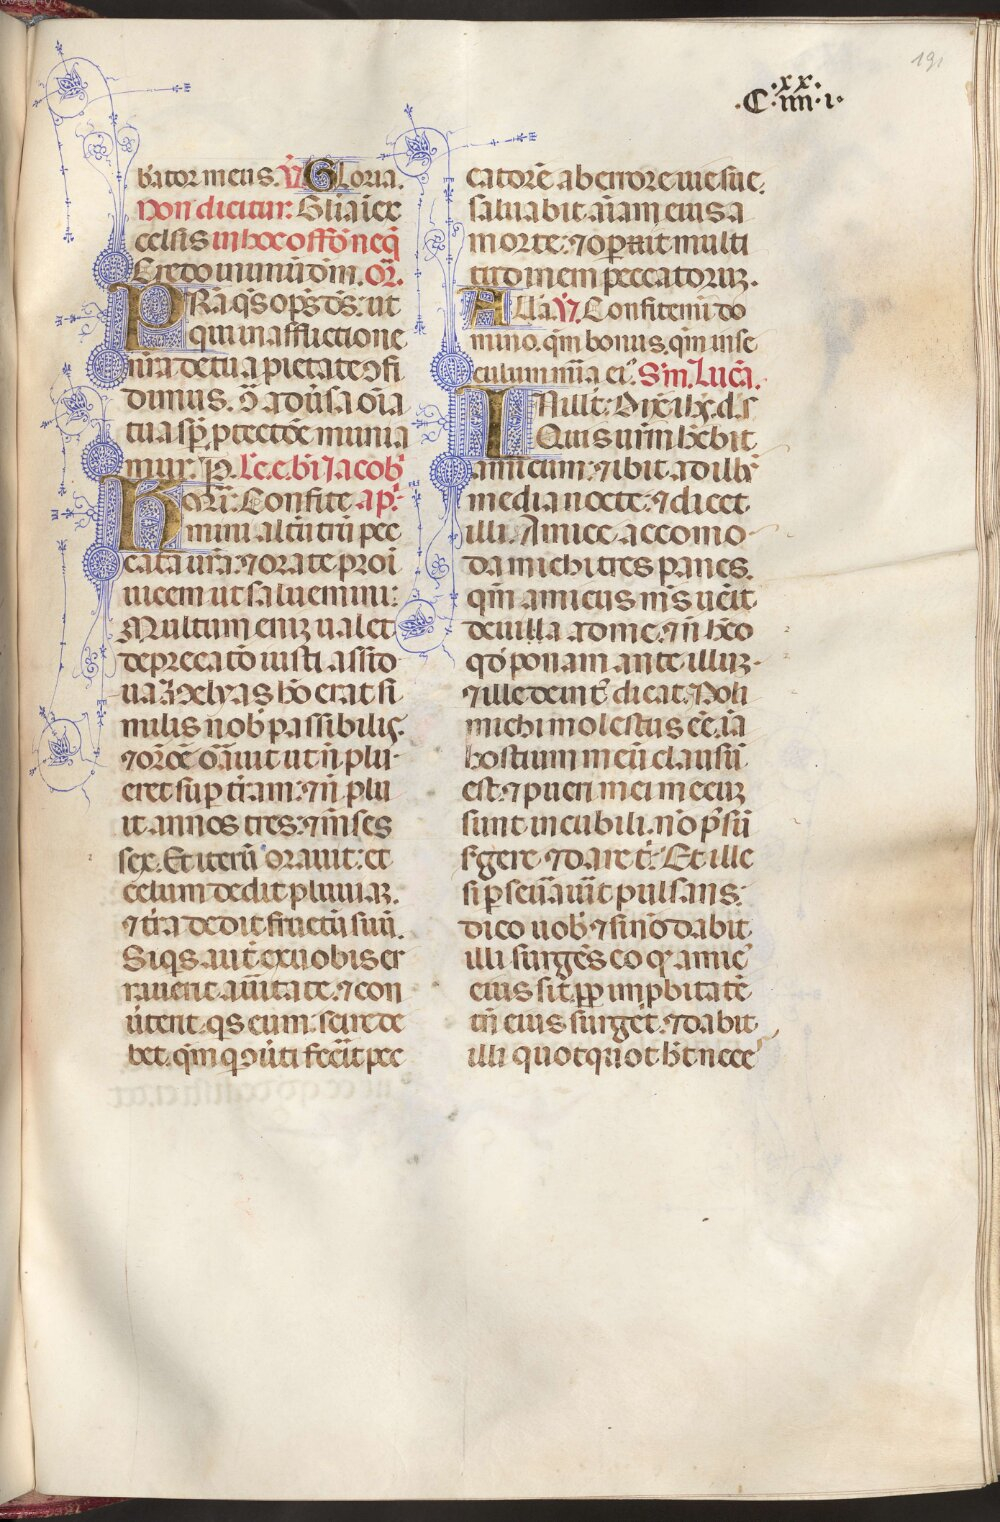 191
·C·
xx
iiii·i·
bator meus. V̄ Gloria.
Non dicitur: Gl̄ia ī ex
celsis in hoc offō neq̄
Credo in unū dm̄. or̄.
PRa q̄s op̄s ds̄: ut
qui in afflictione
nr̄a de tua pietate ↄfi
dimus. ↄ̄ aduˀsa oīa
tua sp̄ ꝓtectōe munia
mur. P. Lc̄. e. bī Jacobˀ
Kōrī: Confite apˀ:
mini altū trū pec
cata ur̄a: ⁊ orate pro ī
uicem ut saluemini:
Multum eniꝫ ualet
deprecatō iusti assid
ua. helyas hō erat si
milis nobˀ passibilis.
⁊ orōe orāuit ut ñ plu
eret suꝑ tr̄am: ⁊ ñ plu
it annos tres: ⁊ m̄ses
sex. Et iterū orauit: et
celum dedit pluuiaꝫ.
⁊ tr̄a dedit fructū suū.
Siq̄s aut̄ ex uobis er
rauerit a uˀitate. ⁊ con
ūterit q̄s eum: scire de
bet. qm̄ q̄ ↄuˀti fecˀit pec
catorē ab errore uie sue.
saluabit aīam eius a
morte: ⁊ oꝑait multi
tudinem peccatoruꝫ.
All̄a. V̄. Confitemī do
mino. qm̄ bonus. qm̄ in se
culum mīa eiˀ. Sm̄. Lucā.
In illˀ t: Dix̄ ih̄c. d. s.
Quis ur̄m hēbit
amicum: ⁊ ibit ad illū
media nocte: ⁊ dicet
illi. Amice accomo
da michi tres panes.
qm̄ amicus m̄s uēit
de uilla ad me. ⁊ ñ hēo
qd̄ ponam ante illuꝫ.
⁊ ille deintˀ dicat. Noli
michi molestus eē. iā
hostium meū clausū
est. ⁊ pueri mei mecuꝫ
sunt in cubili. nō pˀsū
sˀgere ⁊ dare tˀ. Et ille
si ꝑseuˀauˀit pulsans:
dico uobˀ ⁊ si nō dabit
illi surgēs eo qˀ amicˀ
eius sit. ꝓp̄ imꝓbitatē
tn̄ eius surget. ⁊ dabit
illi quotquot ht̄ nece